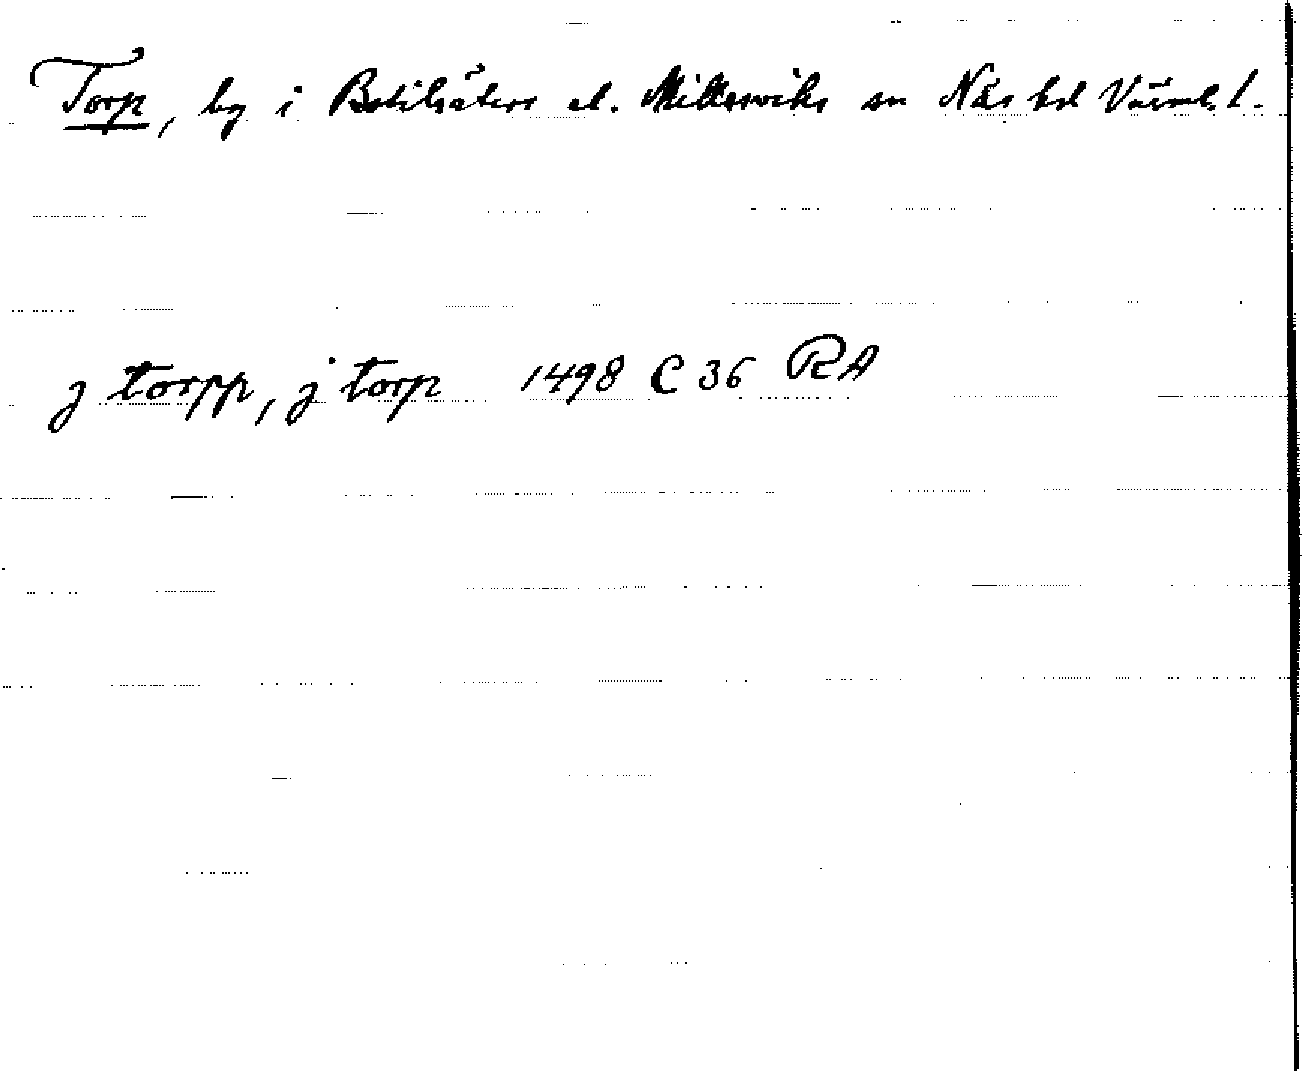 Torp, by i Botilsäters el. Millesviks sn Näs hd Värml. l.
j torpp, j torp 1498 C 36 RA